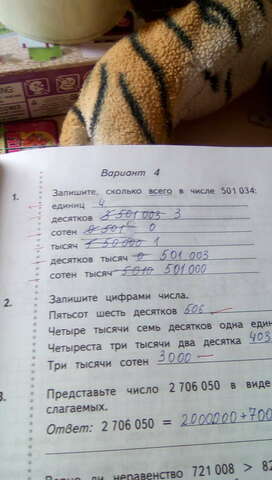 Вариант 4
1. Запишите, сколько всего в числе 501 034:
единиц 4
десятков 3
сотен 0
тысяч 1
десятков тысяч 501 003
сотен тысяч 501 000
2. Запишите цифрами числа.
Пятьсот шесть десятков 506
Четыре тысячи семь десятков одна един
Четыреста три тысячи два десятка 403
Три тысячи сотен 3000
3. Представьте число 2 706 050 в виде
слагаемых.
Ответ: 2 706 050 = 2000000+700
ли неравенство 721 008 > 82